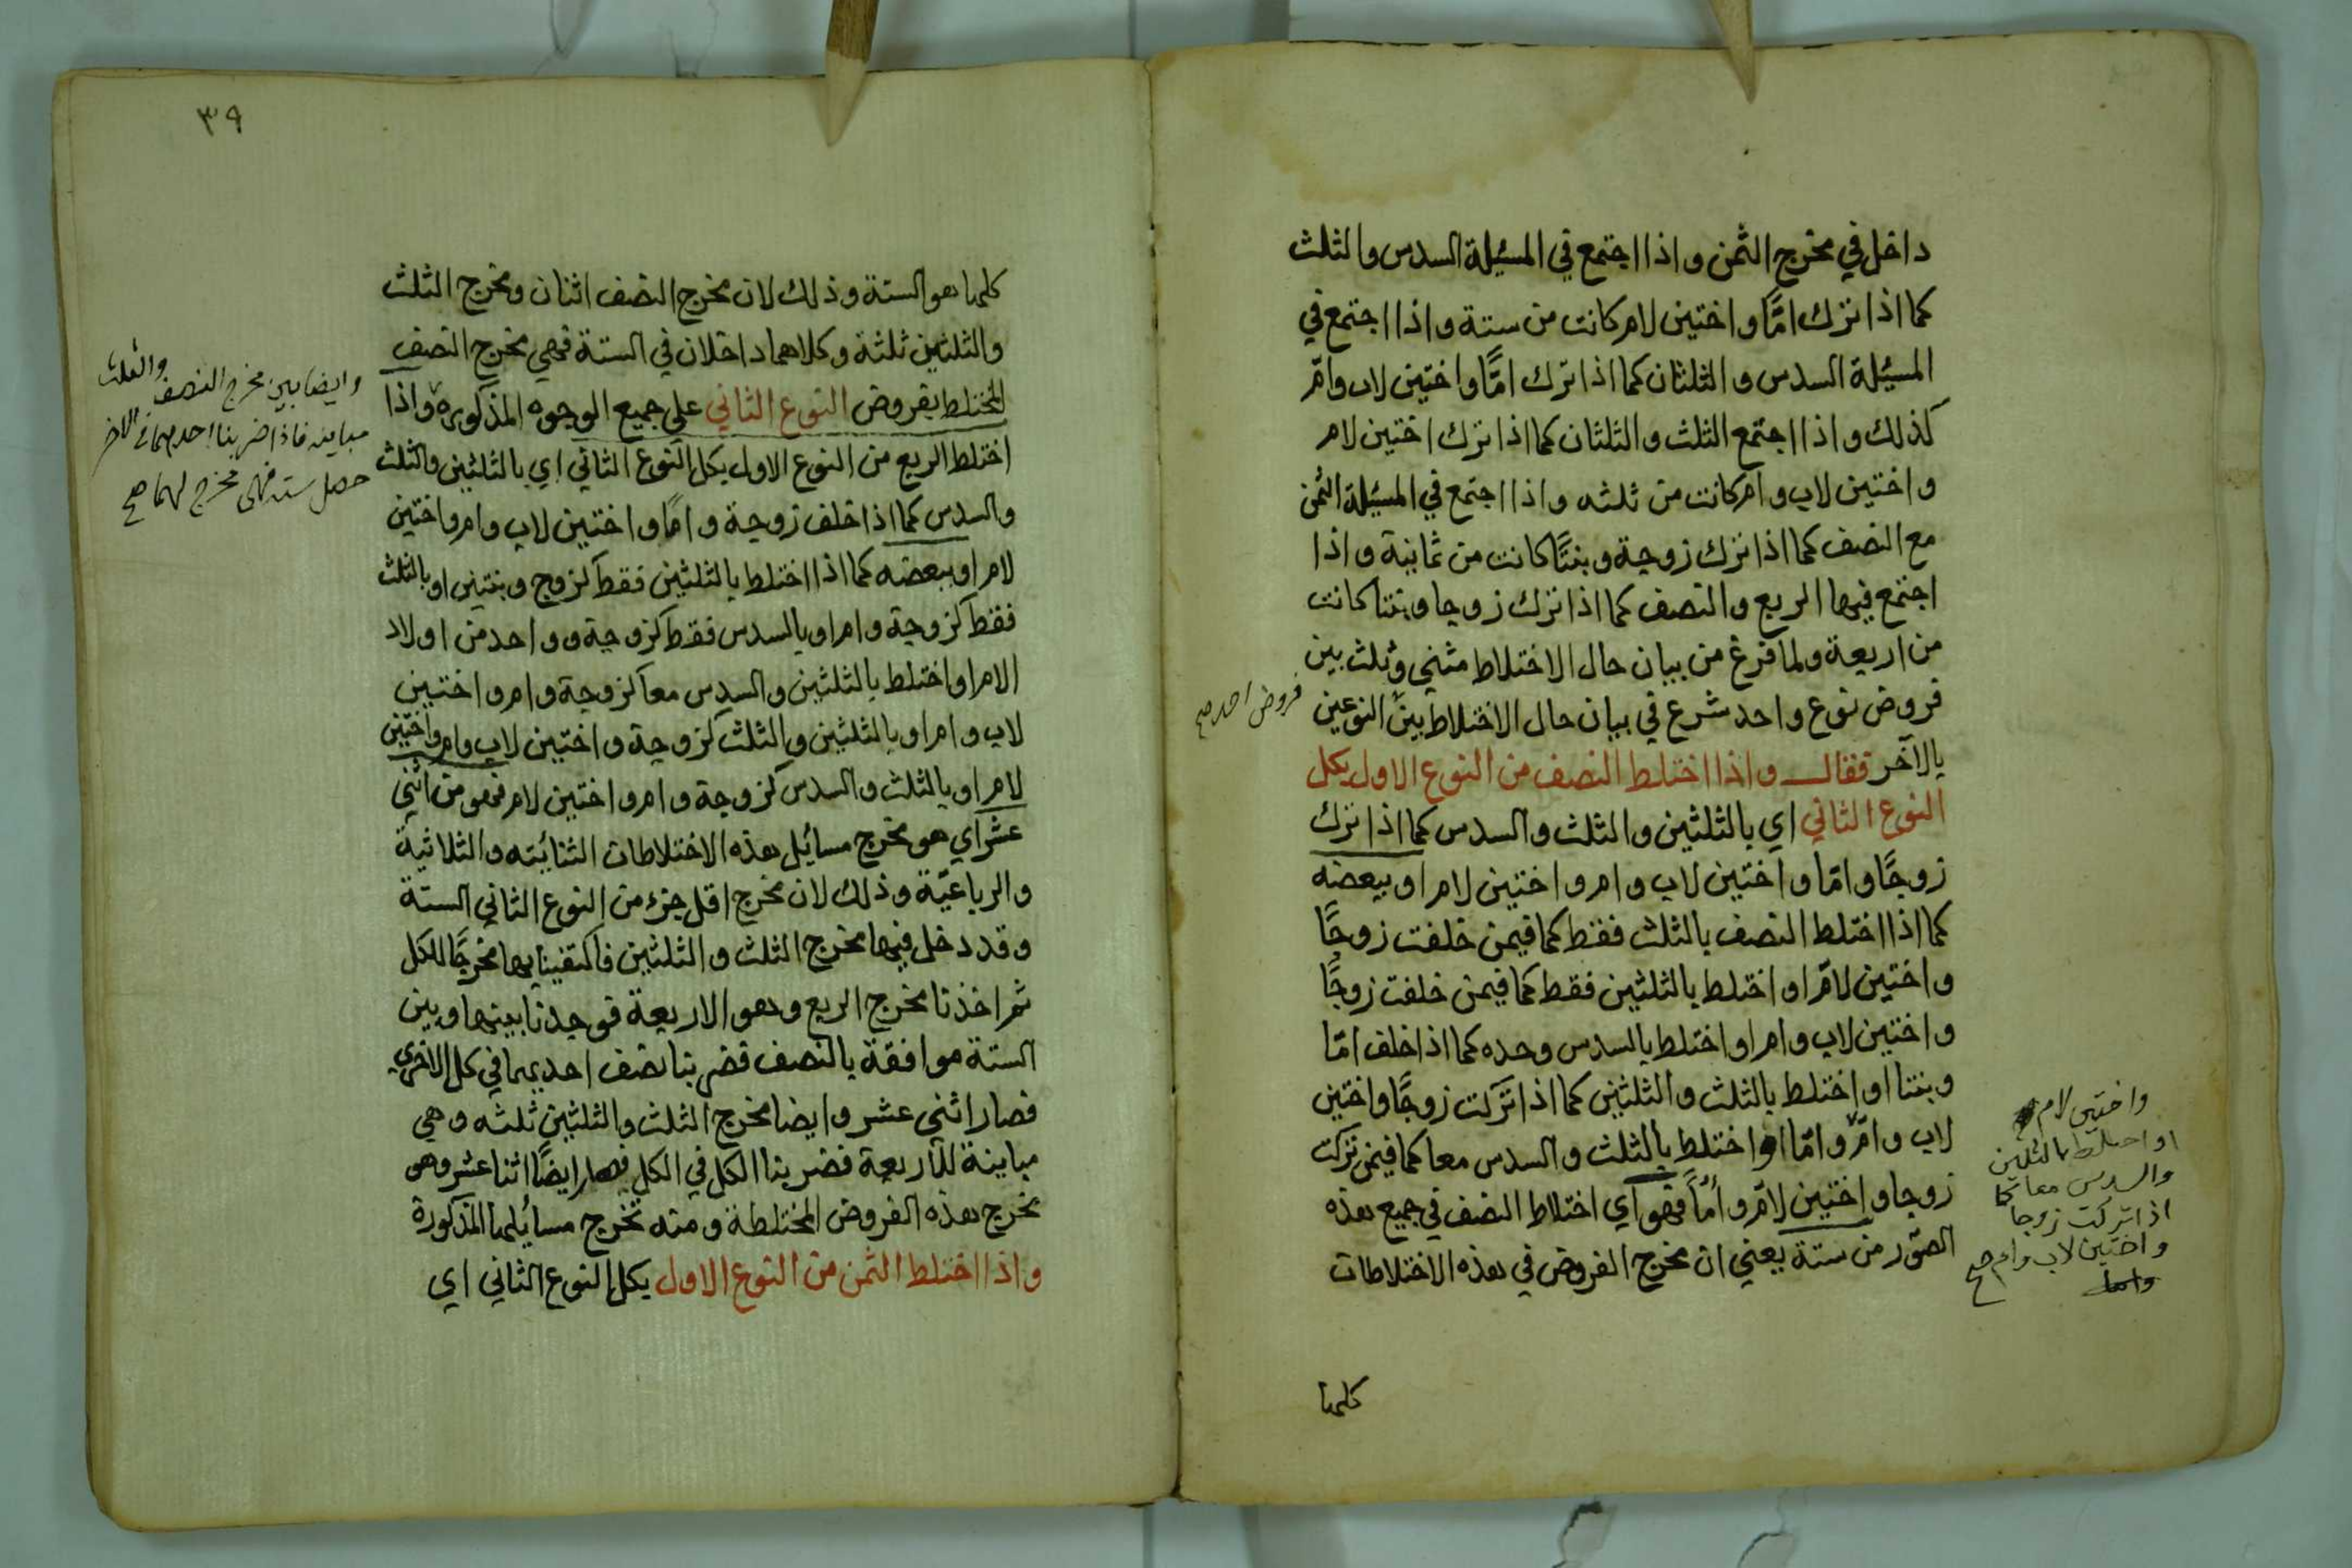 داخل في مخرج الثمن واذا اجتمع في المسئلة السدس والثلث
كما اذا ترك امًّا واختين لام كانت من ستة واذا اجتمع في
المسئلة السدس والثلثان كما اذا ترك امًّا واختين لاب وامّ
كذلك واذا اجتمع الثلث والثلثان كما اذا ترك اختين لام
واختين لاب وام كانت من ثلثه واذا اجتمع في المسئلة الثمن
مع النصف كما اذا ترك زوجة وبنتًا كانت من ثمانية واذا
اجتمع فيها الربع والنصف كما اذا ترك زوجا وبنتا كانت
من اربعة ولما فرغ من بيان حال الاختلاط مثنى وثلث بين
فروض نوع واحد شرع في بيان حال الاختلاط بين النوعين
فروض احد صح
بالآخر فقال واذا اختلط النصف من النوع الاول بكل
النوع الثاني اي بالثلثين والثلث والسدس كما اذا ترك
زوجًا وامّا واختين لاب وام واختين لام او ببعضه
كما اذا اختلط النصف بالثلث فقط كما فيمن خلفت زوجًا
واختين لامّ او اختلط بالثلثين فقط كما فيمن خلفت زوجًا
واختين لاب وام او اختلط بالسدس وحده كما اذا خلف امّا
وبنتا او اختلط بالثلث والثلثين كما اذا تركت زوجًا واختين
لاب وامّ وامّا او اختلط بالثلث والسدس معا كما فيمن تركت
زوجا واختين لامّ وامًّا فهو اي اختلاط النصف في جميع هذه
الصّور من ستة يعني ان مخرج الفروض في هذه الاختلاطات
واختين لام
او اختلط بالثلثين
والسدس معا كما
اذا تركت زوجا
واختين لاب وام صح
كلها
٣٩
كلها هو الستة وذلك لان مخرج النصف اثنان ومخرج الثلث
والثلثين ثلثة وكلاهما داخلان في الستة فهي مخرج النصف
المختلط بفروض النوع الثاني على جميع الوجوه المذكورة واذا
اختلط الربع من النوع الاول بكل النوع الثاني اي بالثلثين والثلث
والسدس كما اذا خلف زوجة وامًا واختين لاب وام واختين
لام او ببعضه كما اذا اختلط بالثلثين فقط كزوج وبنتين او بالثلث
فقط كزوجة وام او بالسدس فقط كزوجة وواحد من اولاد
الام او اختلط بالثلثين والسدس معا كزوجة وام واختين
لاب وام او بالثلثين والثلث كزوجة واختين لاب وام واختين
لام او بالثلث والسدس كزوجة وام واختين لام فهو من اثني
عشر اي هو مخرج مسائل هذه الاختلاطات الثنائيته والثلاثية
والرباعيّة وذلك لان مخرج اقل جزء من النوع الثاني الستة
وقد دخل فيها مخرج الثلث والثلثين فاكتفينا بها مخرجًا للكل
ثم اخذنا مخرج الربع وهو الاربعة فوجدنا بينها وبين
الستة موافقة بالنصف فضربنا نصف احديهما في كل الاخرى
فصار اثنى عشر وايضا مخرج الثلث والثلثين ثلثه وهي
مباينة للاربعة فضربنا الكل في الكل فصار ايضًا اثنا عشر وهو
مخرج هذه الفروض المختلطة ومنه تخرج مسائلها المذكورة
واذا اختلط الثمن من النوع الاول بكل النوع الثاني اي
وايضا بين مخرج النصف والثلث
مباينه فاذا ضربنا احدهما في الاخر
حصل سته فهى مخرج لهما صح